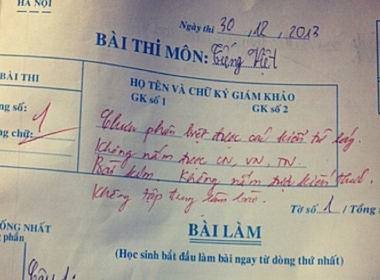 HÀ NỘI
Ngày thi 30, 12, 2013
BÀI THI MÔN: Tiếng Việt
BÀI THI
HỌ TÊN VÀ CHỮ KÝ GIÁM KHẢO
GK số 1 GK số 2
ng số: 1
ng chữ:
Chưa phân biệt được các kiểu từ láy.
Không nắm được CN, VN, TN.
Rất kém. Không nắm được kiến thức.
Không tập trung làm bài.
Tờ số 1 / Tổng
ỐNG NHẤT
phần
BÀI LÀM
(Học sinh bắt đầu làm bài ngay từ dòng thứ nhất)
Câu 1: